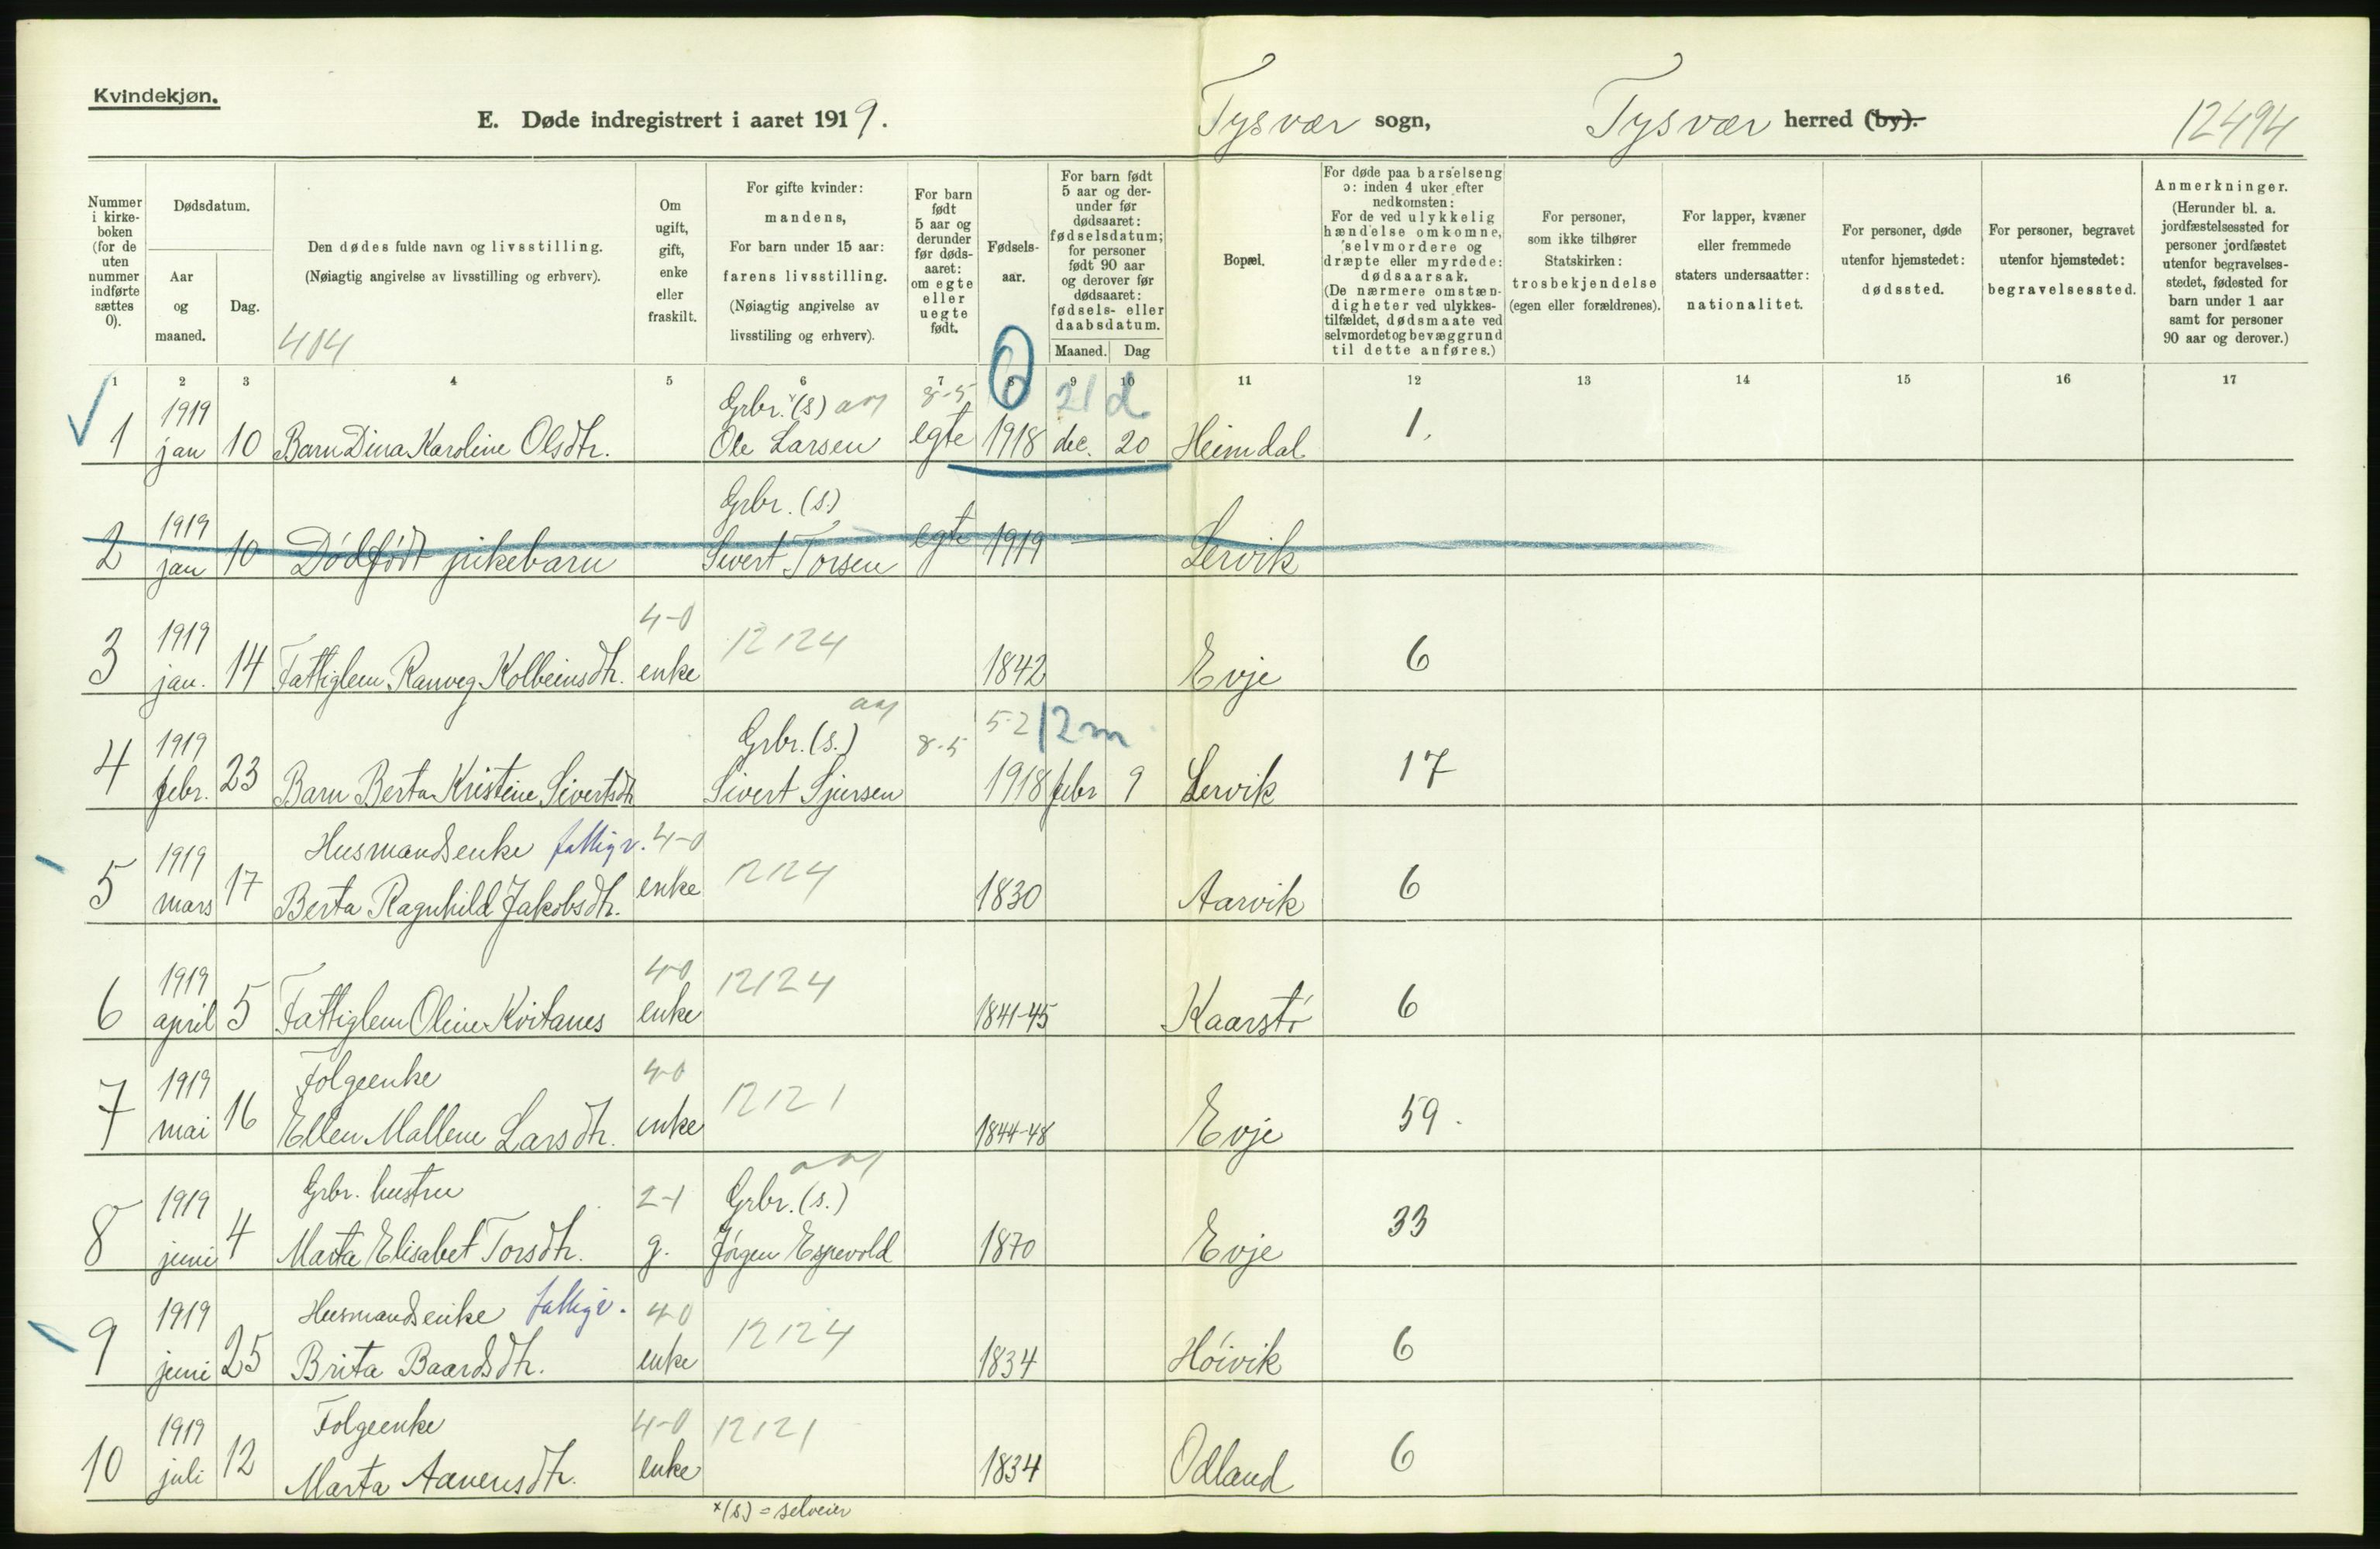 Kvindekjøn.
E. Døde indregistrert i aaret 1919.
Tysvær sogn,
Tysvær herred (by).
12494
Nummer i kirke-boken (for de uten nummer indførte sættes 0).
Dødsdatum.
Aar og maaned.
Dag.
Den dødes fulde navn og livsstilling.
(Nøiagtig angivelse av livsstilling og erhverv).
404
Om ugift, gift, enke eller fraskilt.
For gifte kvinder: mandens,
For barn under 15 aar: farens livsstilling.
(Nøiagtig angivelse av livsstiling og erhverv).
For barn født 5 aar og derunder før døds-aaret: om egte eller uegte født.
Fødsels-aar.
For barn født 5 aar og der-under før dødsaaret: fødselsdatum; for personer født 90 aar og derover før dødsaaret: fødsels- eller daabsdatum.
Maaned. Dag
Bopæl.
For døde paa barselseng ɔ: inden 4 uker efter nedkomsten:
For de ved ulykkelig hændelse omkomne, selvmordere og dræpte eller myrdede: dødsaarsak.
(De nærmere omstæn-digheter ved ulykkes-tilfældet, dødsmaate ved selvmordet og bevæggrund til dette anføres.)
For personer, som ikke tilhører Statskirken: trosbekjendelse (egen eller forældrenes).
For lapper, kvæner eller fremmede staters undersaatter: nationalitet.
For personer, døde utenfor hjemstedet: dødssted.
For personer, begravet utenfor hjemstedet: begravelsessted.
Anmerkninger.
(Herunder bl. a. jordfæstelsessted for personer jordfæstet utenfor begravelses-stedet, fødested for barn under 1 aar samt for personer 90 aar og derover.)
1 2 3 4 5 6 7 8 9 10 11 12 13 14 15 16 17
1919 Grbr.ˣ(s) 8-5 6 21 d
1 jan 10 Barn Dina Karoline Olsdtr. Ole Larsen egte 1918 dec. 20 Heimdal 1.
1919 Grbr. (s.)
2 jan 10 Dödfödt pikebarn Sivert Torsen egte 1919 Lervik
1919 4-0 12124
3 jan. 14 Fattiglem Ranveg Kolbeinsdtr. enke 1842 Evje 6
1919 Grbr. (s.) 8-5 5-2 12 m
4 febr. 23 Barn Berta Kristine Sivertsdtr Sivert Sjursen 1918 febr 9 Lervik 17
1919 Husmandsenke fattigv. 4-0 12124
5 mars 17 Berta Ragnhild Jakobsdtr. enke 1830 Aarvik 6
1919 4-0 12124
6 april 5 Fattiglem Oline Kvitanes enke 1841-45 Kaarstö 6
1919 Folgeenke 4-0 12121
7 mai 16 Ellen Mallene Larsdtr. enke 1844-48 Evje 59.
1919 Grbr. hustru 2-1 Grbr. (s.)
8 juni 4 Marta Elisabet Torsdtr. g. Jörgen Espevold 1870 Evje 33
1919 Husmandsenke fattigv. 4-0 12124
9 juni 25 Brita Baardsdtr. enke 1834 Höivik 6
1919 Folgeenke 4-0 12121
10 juli 12 Marta Aanensdtr. enke 1834 Odland 6
ˣ(s) = selveier